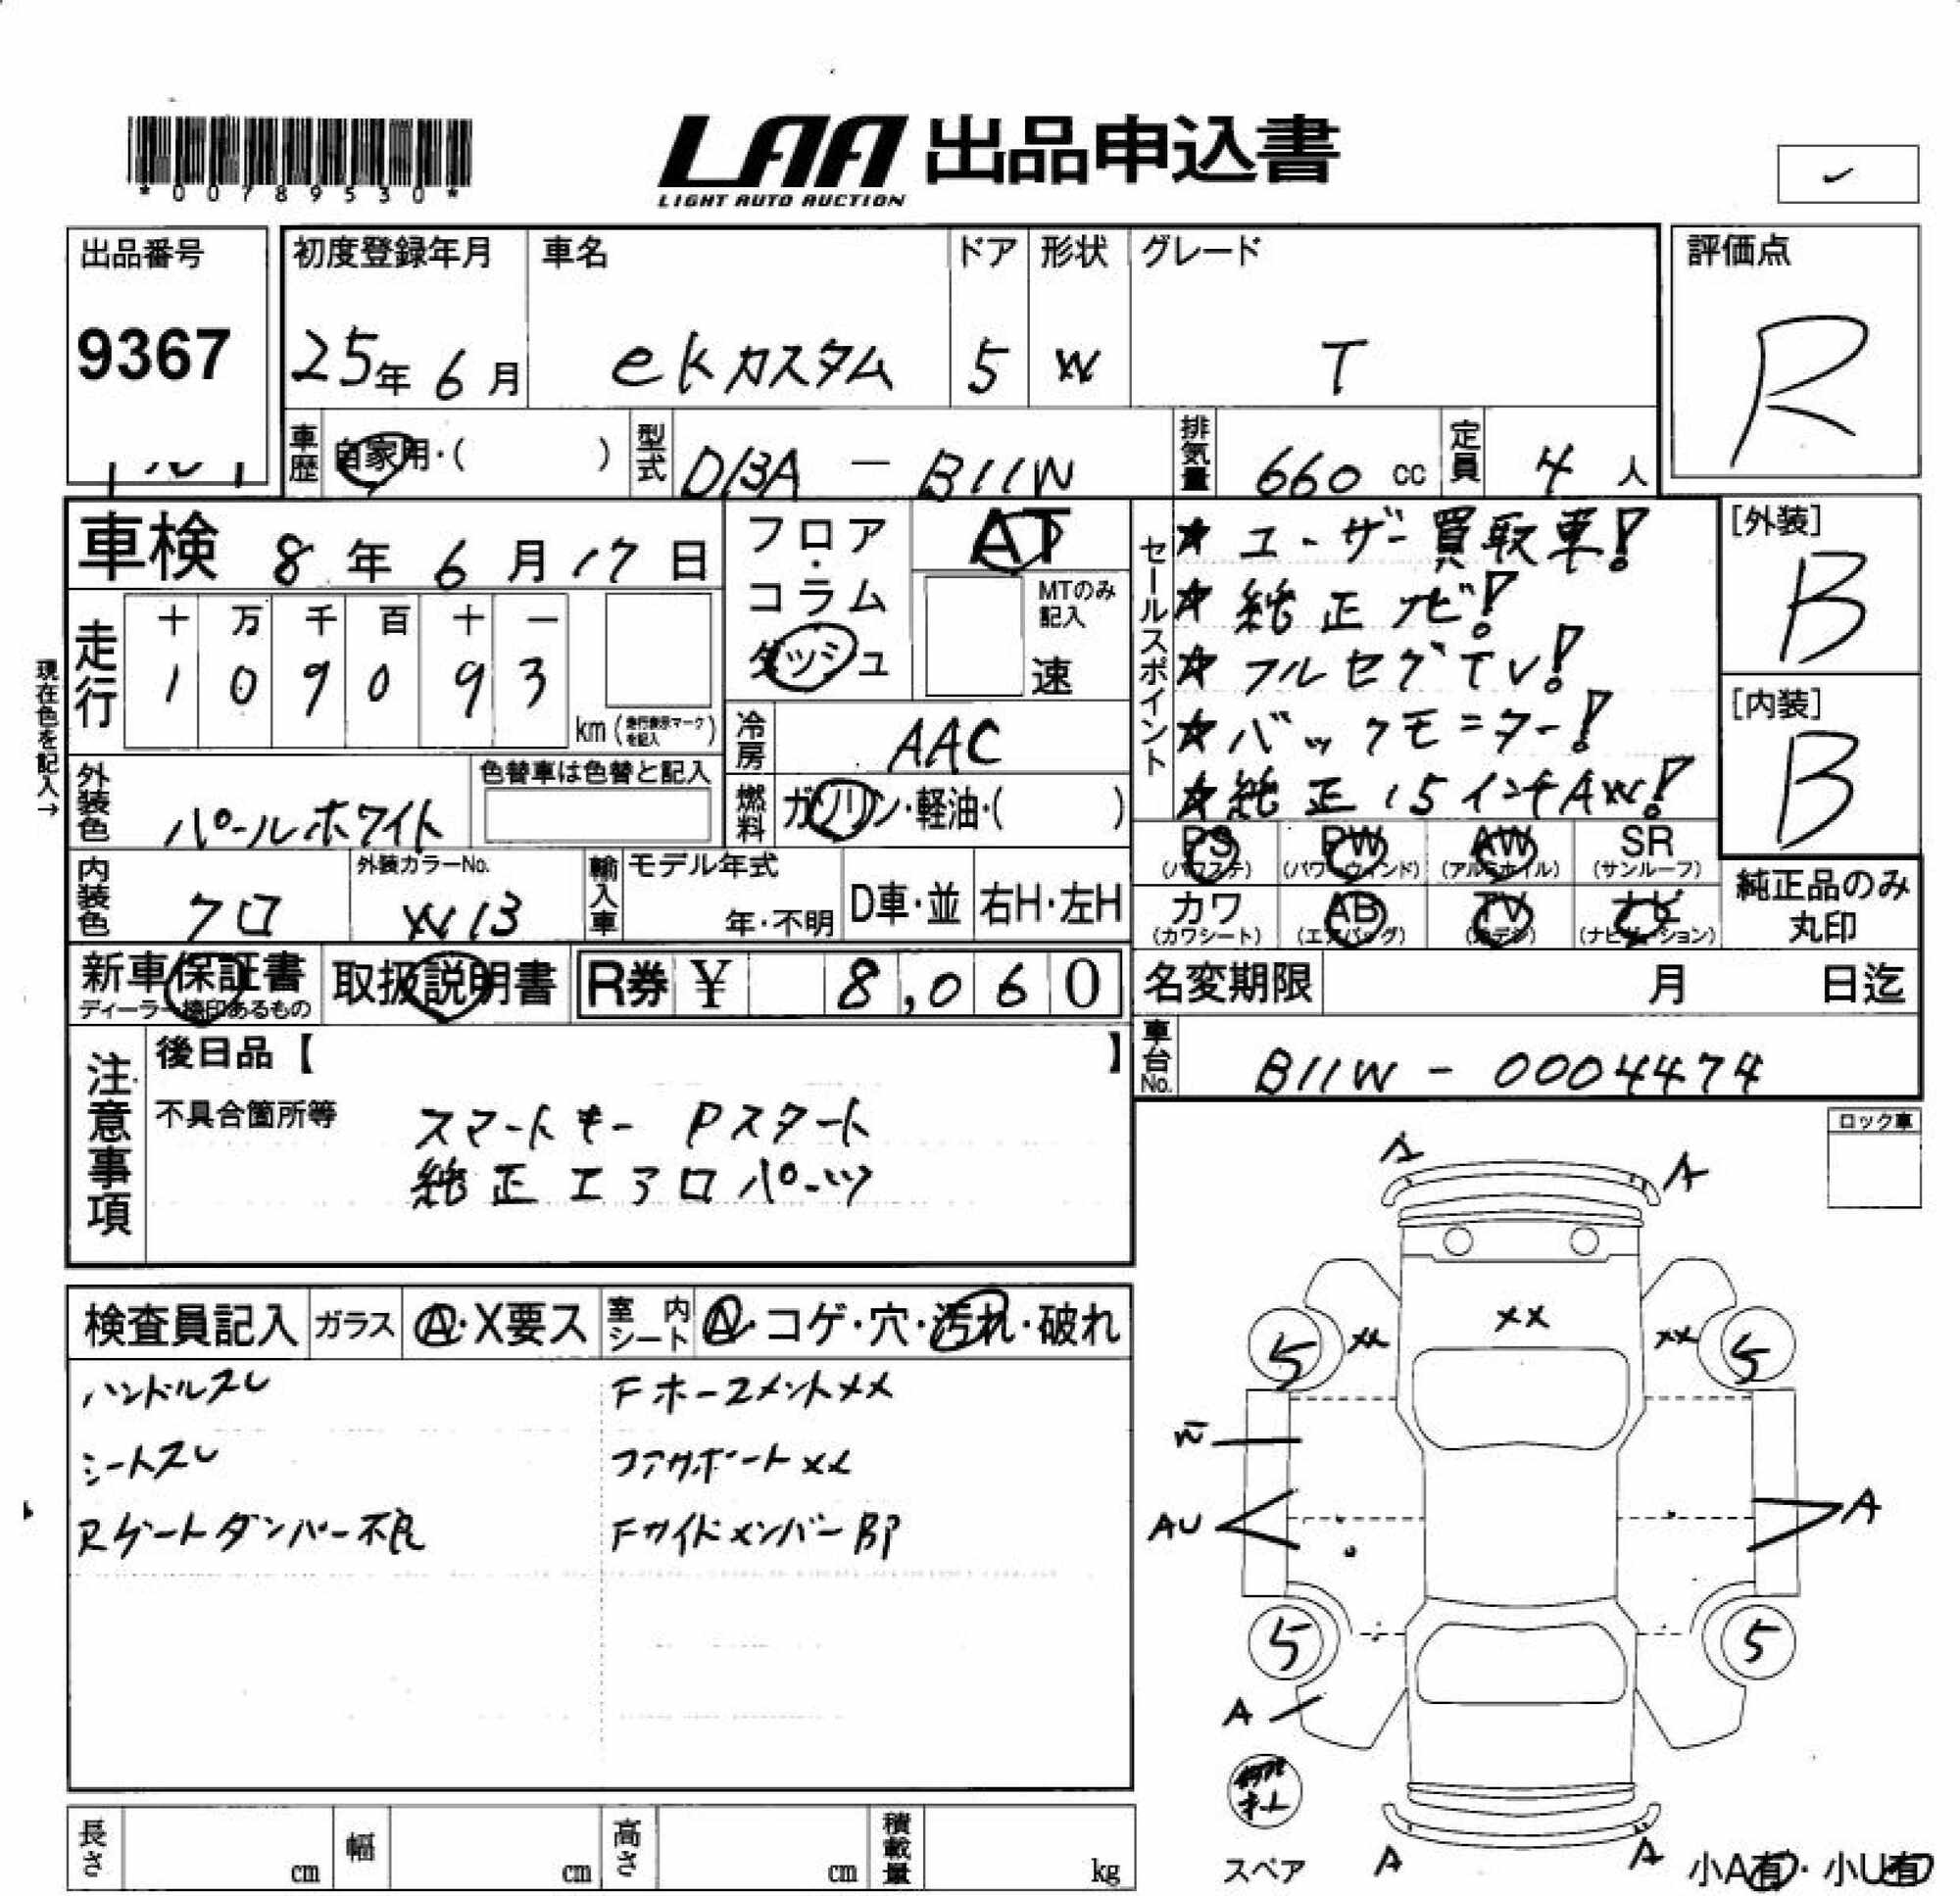 *00789530*
LAA 出品申込書
LIGHT AUTO AUCTION
出品番号
9367
初度登録年月
25年 6月
車名
ekカスタム
ドア
5
形状
W
グレード
T
評価点
R
車歴 自家用・( )
型式 DBA － B11W
排気量 660 cc
定員 4 人
車検 8年 6月 17日
フロア・コラム
ダッシュ
AT
MTのみ記入
速
走行
十 万 千 百 十 一
1 0 9 0 9 3
km (走行表示マークを記入)
現在色を記入→
冷房 AAC
燃料 ガソリン・軽油・( )
外装色 パールホワイト
色替車は色替と記入
内装色 クロ
外装カラーNo.
W13
輸入車
モデル年式
年・不明
D車・並
右H・左H
セールスポイント
★ ユーザー買取車!
★ 純正ナビ!
★ フルセグTV!
★ バックモニター!
★ 純正15インチAW!
[外装]
B
[内装]
B
PS (パワステ) PW (パワーウィンド) AW (アルミホイル) SR (サンルーフ)
カワ (カワシート) AB (エアバッグ) TV ナビ (ナビゲーション)
純正品のみ丸印
新車保証書
ディーラー捺印あるもの
取扱説明書
R券 ¥ 8,060
名変期限 月 日迄
車台No. B11W - 0004474
注意事項
後日品【 】
不具合箇所等
スマートキー Pスタート
純正エアロパーツ
ロック車
検査員記入
ガラス Ⓐ・X要ス
室内シート Ⓐ・コゲ・穴・汚れ・破れ
ハンドルスレ
シートスレ
Rゲートダンパー不良
Fホースメントxx
コアサポートxx
Fサイドメンバー
A
A
xx
xx
xx
5
5
AU
A
5
5
A
スペア
A
A
小A有・小U有
長さ cm
幅 cm
高さ cm
積載量 kg